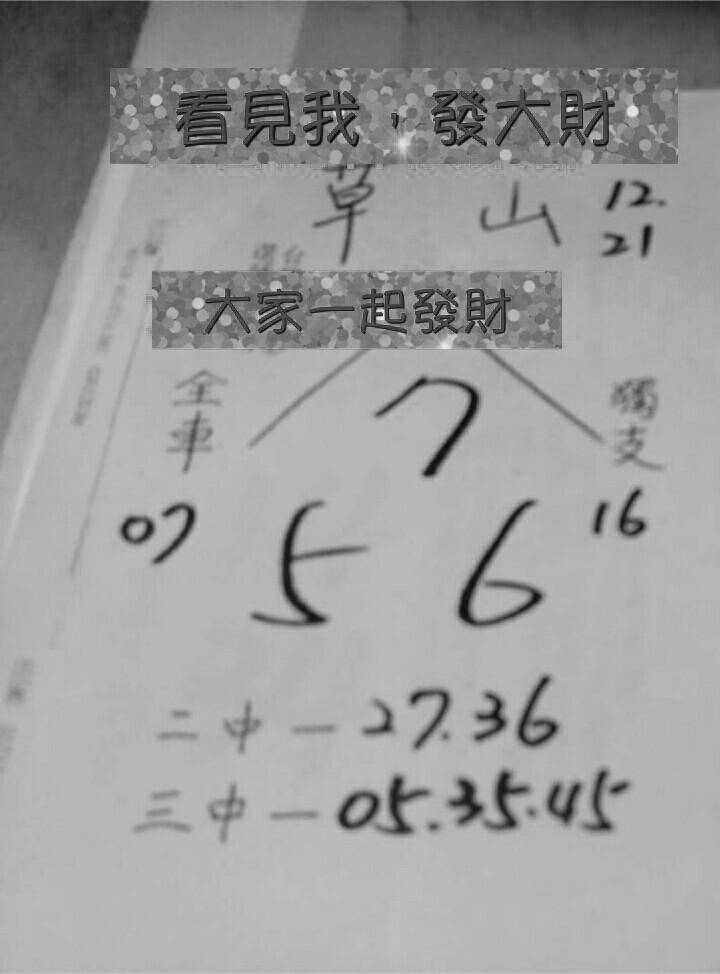 看見我，發大財
草山 12.
21
大家一起發財
全車
獨支
7
07
5 6
16
二中一27.36
三中一05.35.45